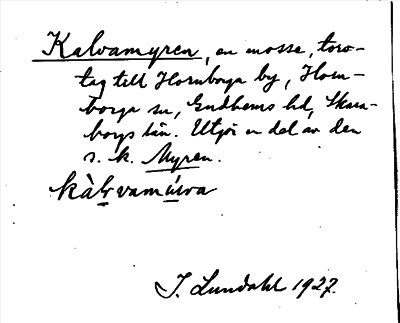 Kalvamyren, en mosse, torv-
tag till Hornborga by, Horn-
borga sn, Gudhems hd, Skara-
borgs län. Utgör en del av den
s. k. Myren.
I. Lundahl 1927.